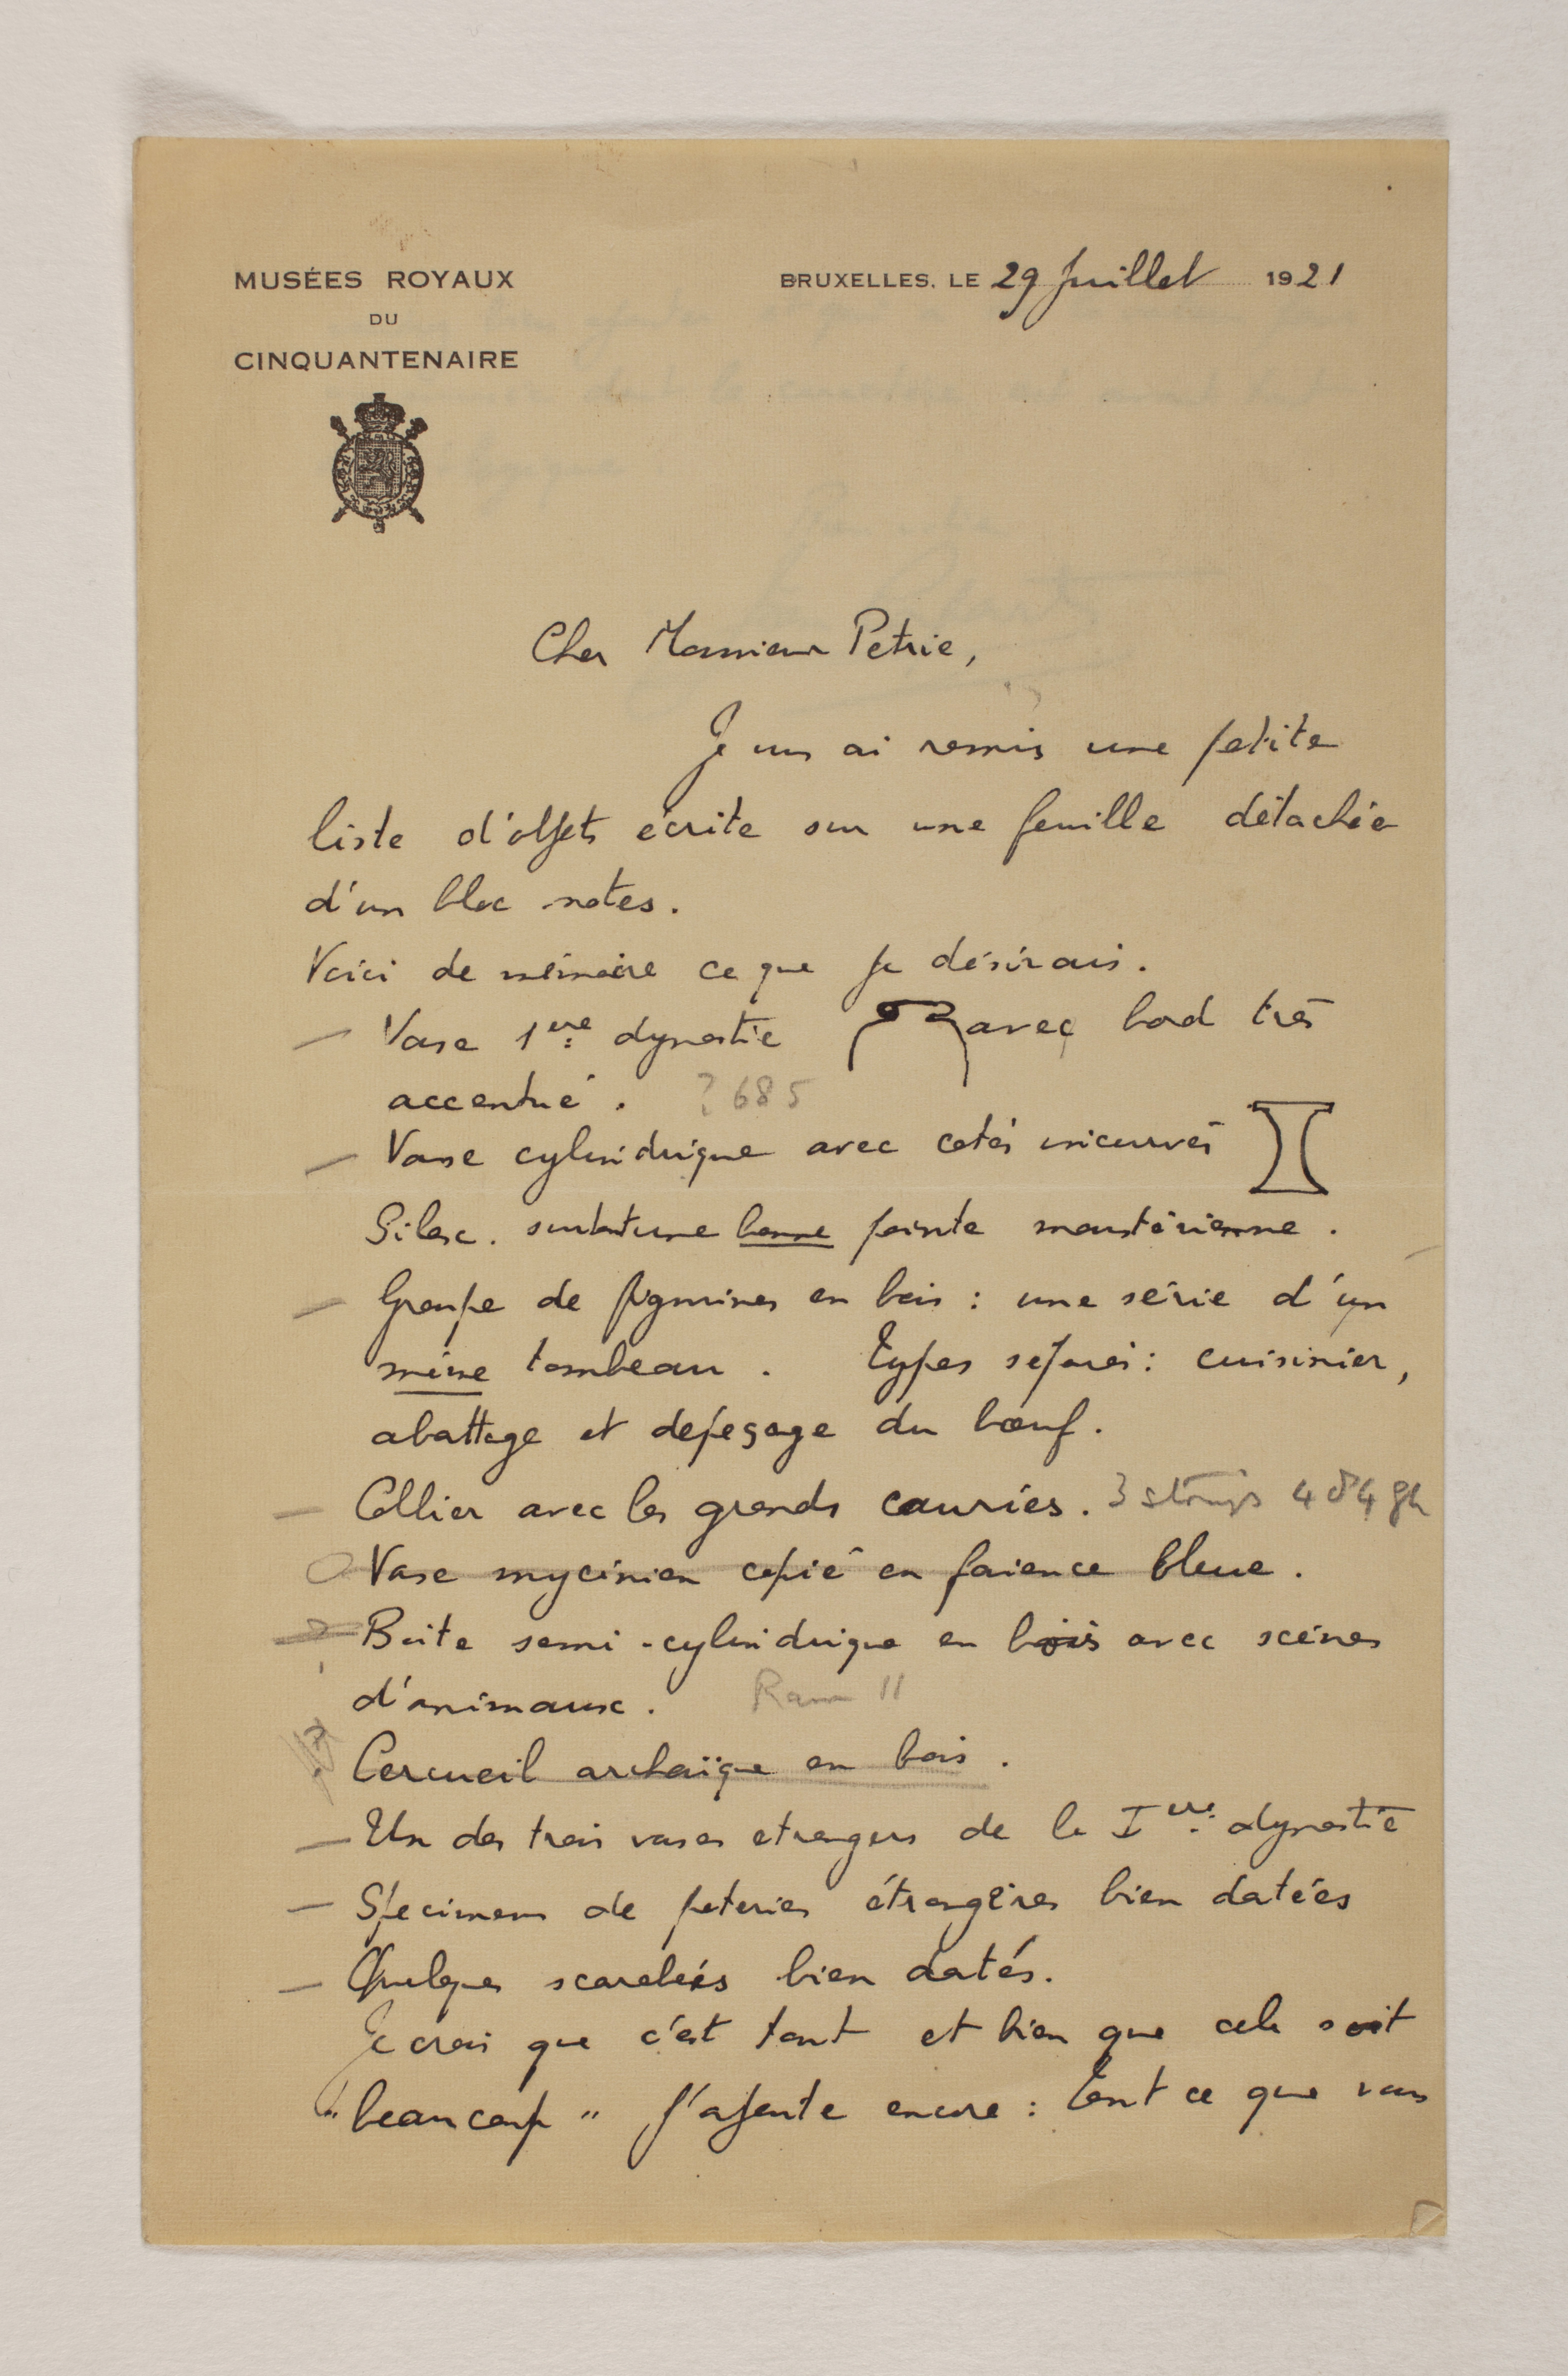 MUSÉES ROYAUX
DU
CINQUANTENAIRE
BRUXELLES, LE 29 Juillet 1921
Cher Monsieur Petrie,
Je vous ai remis une petite
liste d'objets écrite sur une feuille détachée
d'un bloc-notes.
Voici de mémoire ce que je désirais.
— Vase 1ère dynastie avec bord très
accentué. ? 685
— Vase cylindrique avec cotés incurvés
Silex. surtout une bonne pointe moustérienne.
— Groupe de figurines en bois : une série d'un
même tombeau. Types séparés : cuisinier,
abattage et depeçage du bœuf.
— Collier avec les grands cauries. 3 strings 484 gh
O Vase mycénien copié en faience bleue.
? Boite semi-cylindrique en bois avec scènes
d'animaux. Ram II
Cercueil archaïque en bois.
— Un des trois vases etrangers de la Iere dynastie
— Specimens de poteries étrangères bien datées
— Quelques scarabées bien datés.
Je crois que c'est tout et bien que cela soit
"beaucoup" j'ajoute encore : tout ce que vous